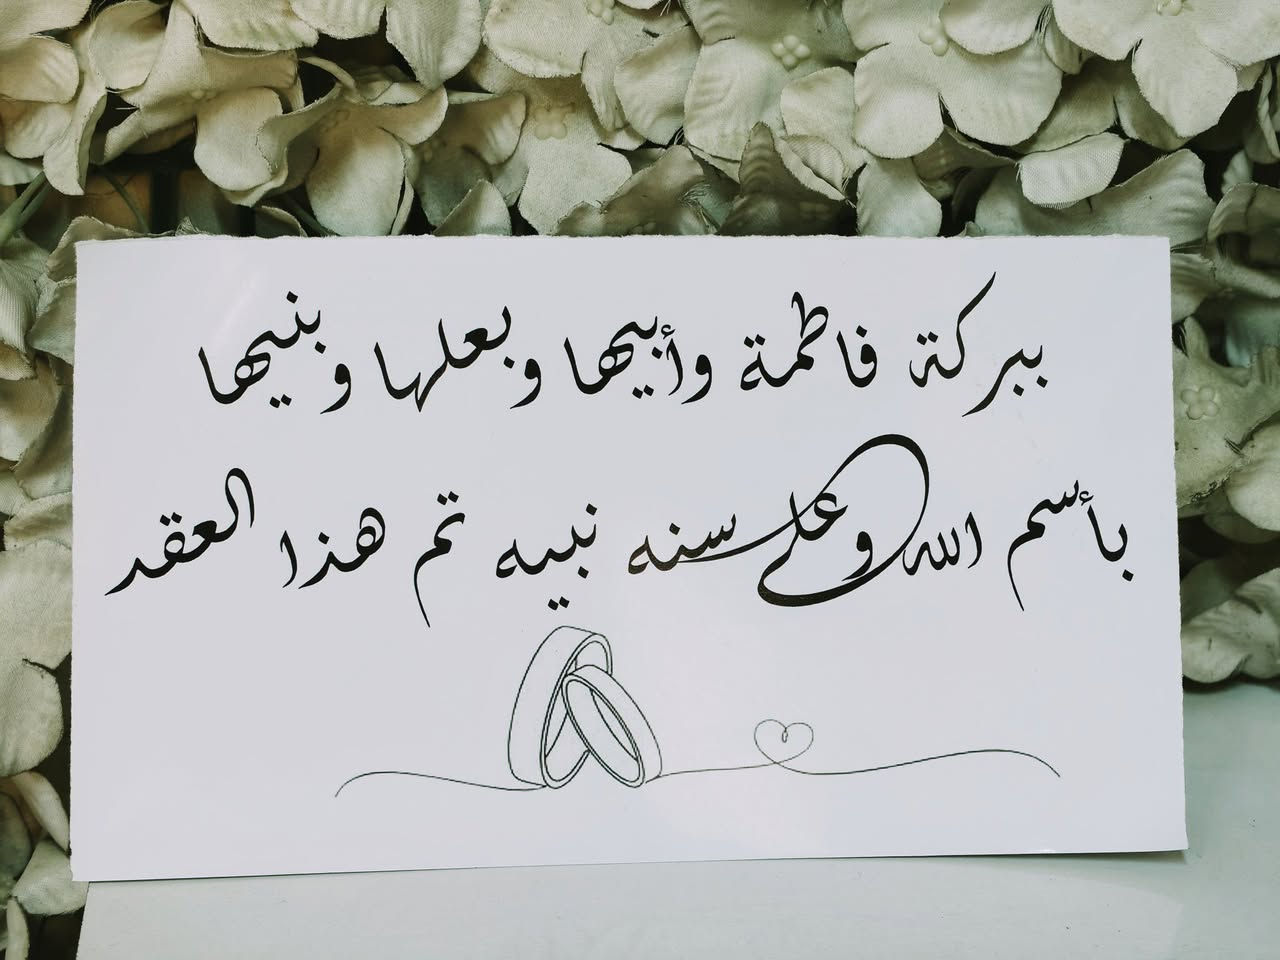 ببركة فاطمة وأبيها وبعلها وبنيها
بأسم الله وعلى سنه نبيه تم هذا العقد